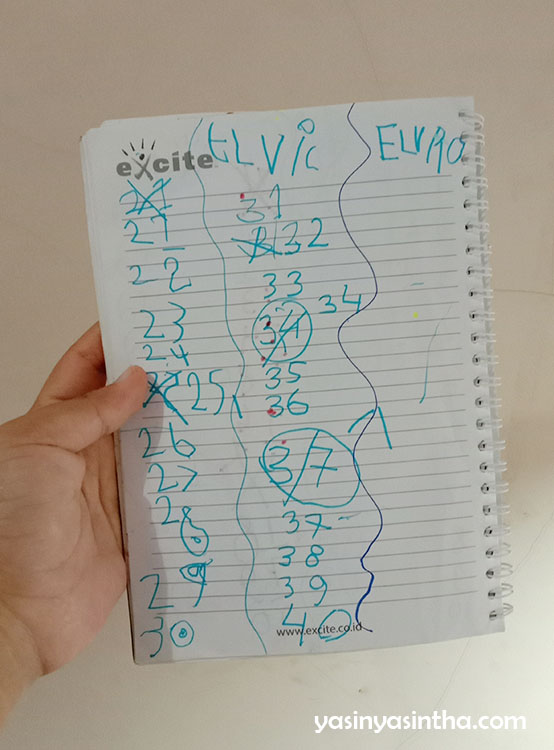 excite
ELVic
ELVRO
21
22
23
24
25
26
27
28
29
30
31
32
33
34
35
36
37
37
38
39
40
www.excite.co.id
yasinyasintha.com